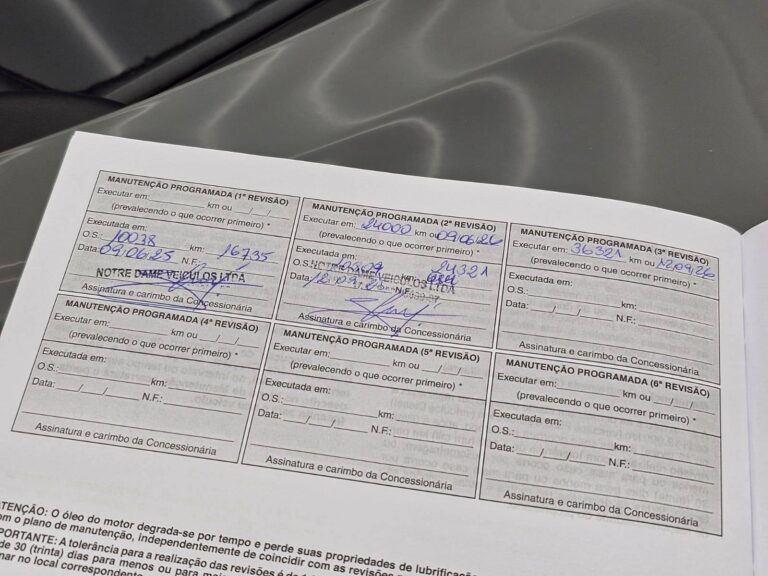 MANUTENÇÃO PROGRAMADA (1ª REVISÃO)
Executar em: km ou __/__/__
(prevalecendo o que ocorrer primeiro) *
Executada em:
O.S.: 10078 km: 16735
Data: 09/06/25 N.F.:
NOTRE DAME VEICULOS LTDA
Assinatura e carimbo da Concessionária
MANUTENÇÃO PROGRAMADA (2ª REVISÃO)
Executar em: 24000 km ou 09/06/26
(prevalecendo o que ocorrer primeiro) *
Executada em:
O.S.: km: 24321
Data: 12/09/25 N.F.:
NOTRE DAME VEICULOS LTDA
Assinatura e carimbo da Concessionária
MANUTENÇÃO PROGRAMADA (3ª REVISÃO)
Executar em: 36321 km ou 12/09/26
(prevalecendo o que ocorrer primeiro) *
Executada em:
O.S.: km:
Data: __/__/__ N.F.:
Assinatura e carimbo da Concessionária
MANUTENÇÃO PROGRAMADA (4ª REVISÃO)
Executar em: km ou __/__/__
(prevalecendo o que ocorrer primeiro) *
Executada em:
O.S.: km:
Data: __/__/__ N.F.:
Assinatura e carimbo da Concessionária
MANUTENÇÃO PROGRAMADA (5ª REVISÃO)
Executar em: km ou __/__/__
(prevalecendo o que ocorrer primeiro) *
Executada em:
O.S.: km:
Data: __/__/__ N.F.:
Assinatura e carimbo da Concessionária
MANUTENÇÃO PROGRAMADA (6ª REVISÃO)
Executar em: km ou __/__/__
(prevalecendo o que ocorrer primeiro) *
Executada em:
O.S.: km:
Data: __/__/__ N.F.:
Assinatura e carimbo da Concessionária
TENÇÃO: O óleo do motor degrada-se por tempo e perde suas propriedades de lubrifica
m o plano de manutenção, independentemente de coincidir com as revisões
PORTANTE: A tolerância para a realização das revisões é de
de 30 (trinta) dias para menos ou para
nar no local correspondente